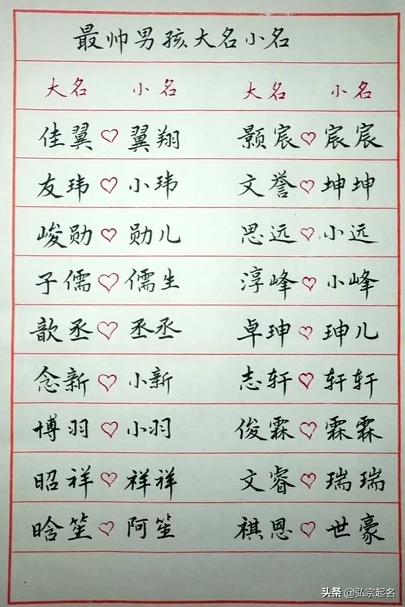 最帅男孩大名小名
大名 小名 大名 小名
佳翼♡翼翔 颢宸♡宸宸
友玮♡小玮 文誉♡坤坤
峻勋♡勋儿 思远♡小远
子儒♡儒生 淳峰♡小峰
歆丞♡丞丞 卓珅♡珅儿
念新♡小新 志轩♡轩轩
博羽♡小羽 俊霖♡霖霖
昭祥♡祥祥 文睿♡瑞瑞
晗笙♡阿笙 祺恩♡世豪
头条 @弘宗起名